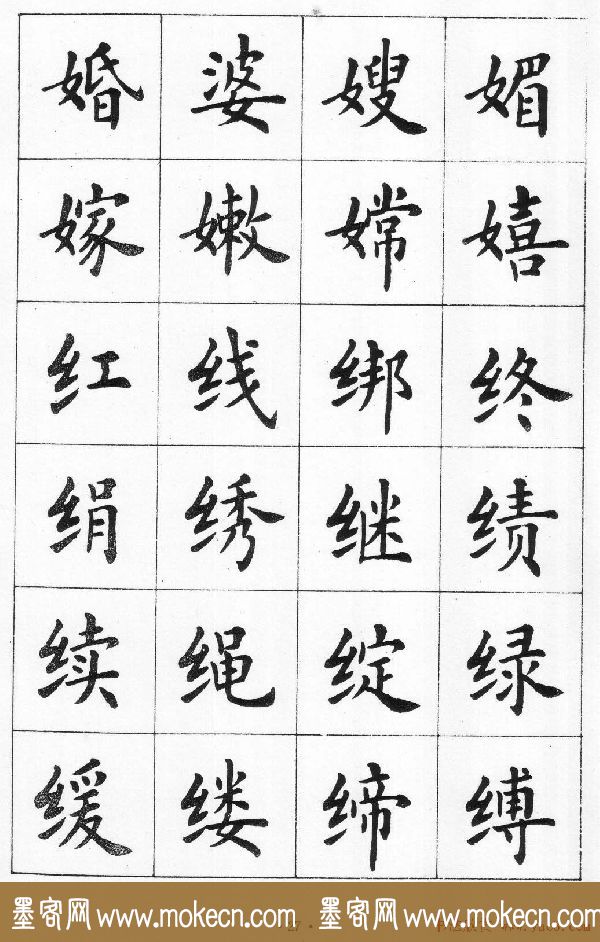 婚婆嫂媚
嫁嫩嫦嬉
红线绑终
绢绣继绩
续绳绽绿
缓缕缔缚
墨客网 www.mokecn.com 墨客网 www.mokecn.com